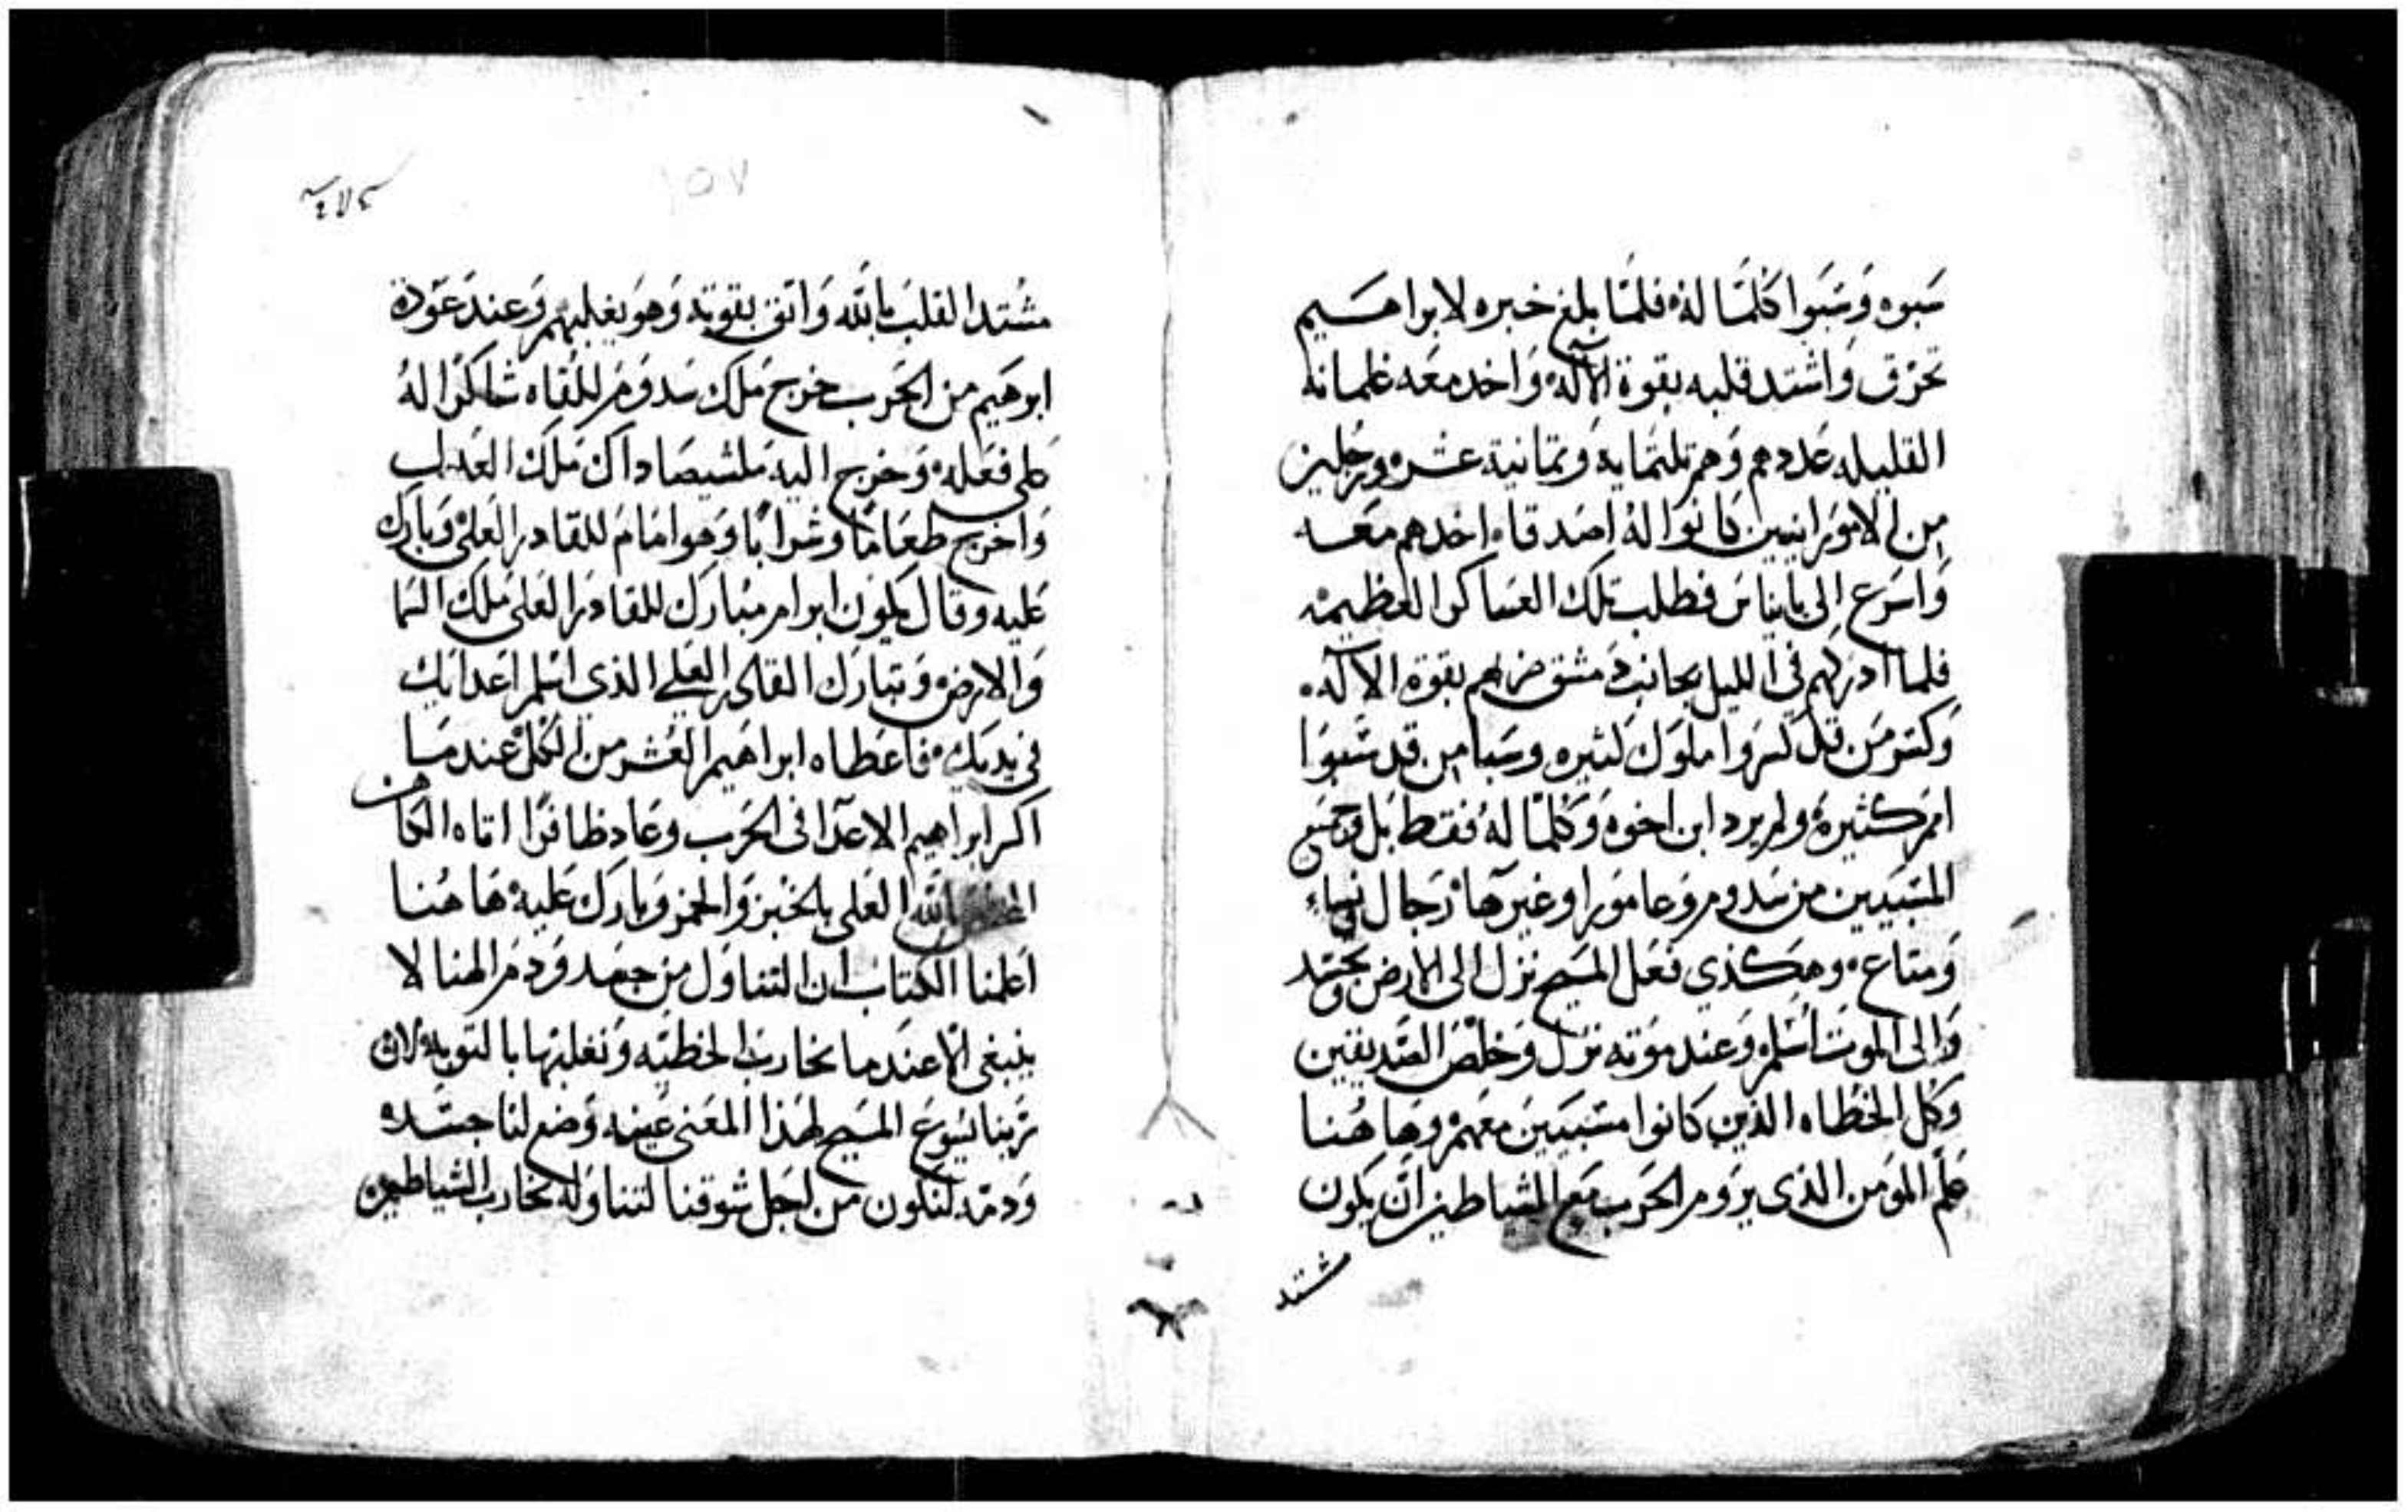 سبوه وَسَبَوا كُلمَّا لهُ فلمَّا بلغ خبره لابراهسيم
تحرّق وَاشتد قلبه بقوة الآله وَاخد معَه غلمانه
القليله عَددهم وَهم تلتمايه وَتمانية عشره ورجلين
من الاموَرانيين كانوَا لهُ اصَدقاء اخدهم معَه
وَاسَرع الى بانياس فطلب تلك العسَاكر العظيمه
فلما ادركهم في الليل بجانب دمشق ضربهم بقوة الآله
وَكسَر مَن قد كسروا ملوَك كتيره وسَبا من قد سَبوَا
امم كثيرة ولم يرد ابن اخوه وَكلمَّا لهُ فقط بل وجميع
المسَبيين من سَدوم وَعاموَرا وغيرَها رجال ونساء
وَمتاع وهكذي فعَل المسَيح نزل الى الارض وتجسَد
وَالى الموت اسَلم وَعند موَته نزل وَخلصَ الصَديقين
وَكل الخطاه الذين كانوا مسَبيَين معَهم وهَا هُنا
علّم الموَمن الذي يرَوم الحَرب مَع الشياطين ان يكون
مشتد
٤٧٤
١٥٧
مشتد القلب بالله وَاتق بقوته وَهوَ يغلبهم وَعند عَوَدة
ابرهَيم من الحَرب خرج مَلك سَدوَم للقاه شاكرًا لهُ
على فعَله وَخرج اليه مَلشيصَاداك مَلك العَدل
وَاخرج طعَامًا وَشرابًا وَهوا امَامَ للقادر العَلي وَبارك
عَليه وقال يكون ابرامر مبَارك للقادر العَلى مَلك السَما
وَالارض وَتبارك القادر العَلي الذي اسَلم اعَدايك
في يديك فاعَطاه ابراهَيم العُشر من الكل عند مَا
اكسر ابراهيم الاعَدا فى الحَرب وعَاد ظافرًا اتاه الكاهن
بالله العَلى بالخبز وَالخمر وَبارك عَليه هَا هُنا
اعَلمنا الكتاب ان التناوَل من جسَد وَدم الهنا لا
ينبغي الا عنَدما نحارب الخطيّه وَنغلبها بالتوبه لان
رَبنا يسَوع المسَيح لهَذا المعَنى عَينه وَضع لنا جسَده
وَدمّه لنكون من اجَل شوقنا لتناوَله نحارب الشياطين